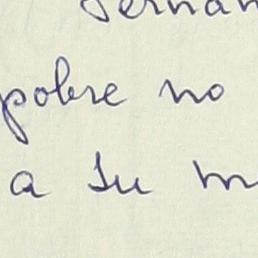 pobre no
a su